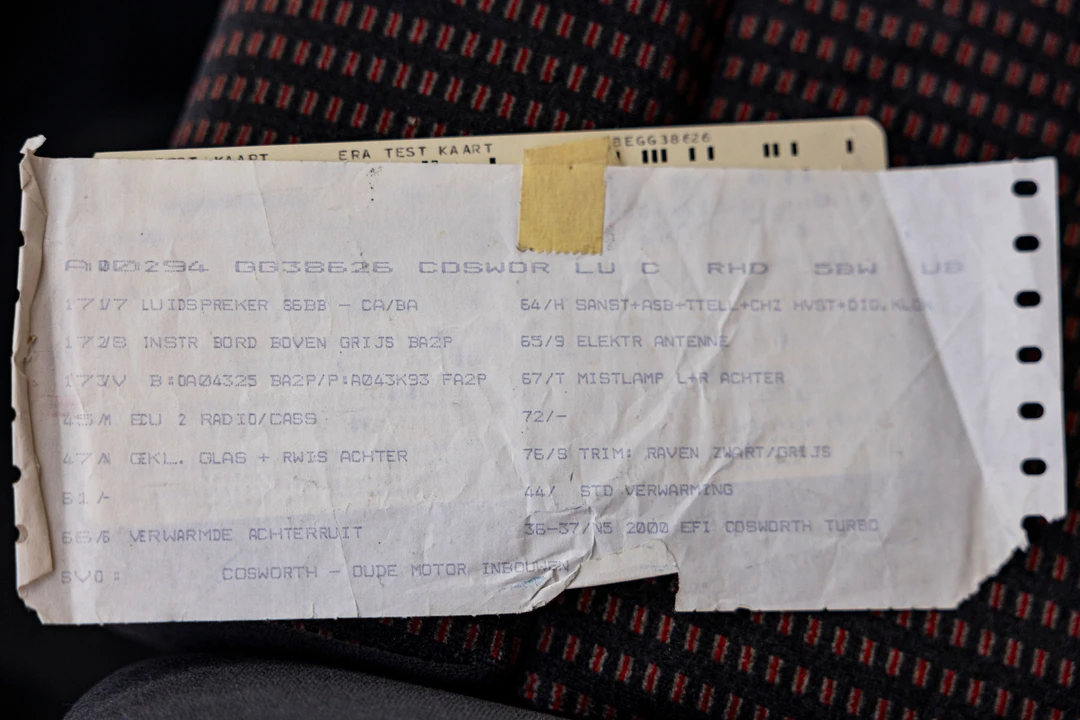 TEST KAART ERA TEST KAART BEGG38626
A00294 GG38626 COSWOR LU C RHD SBW UB
171/7 LUIDSPREKER 86BB - CA/BA 64/H SANST+ASB+TTELL+CHZ HVST+DIG.KLOK
172/8 INSTR BORD BOVEN GRIJS BA2P 65/9 ELEKTR ANTENNE
173/V B:DA04325 BA2P/P:A043K93 FA2P 67/T MISTLAMP L+R ACHTER
45/M ECU 2 RADIO/CASS 72/-
47/N GEKL. GLAS + RWIS ACHTER 76/S TRIM: RAVEN ZWART/GRIJS
51/- 44/ STD VERWARMING
66/6 VERWARMDE ACHTERRUIT 36-37/N5 2000 EFI COSWORTH TURBO
SVO: COSWORTH - OUDE MOTOR INBOUWEN